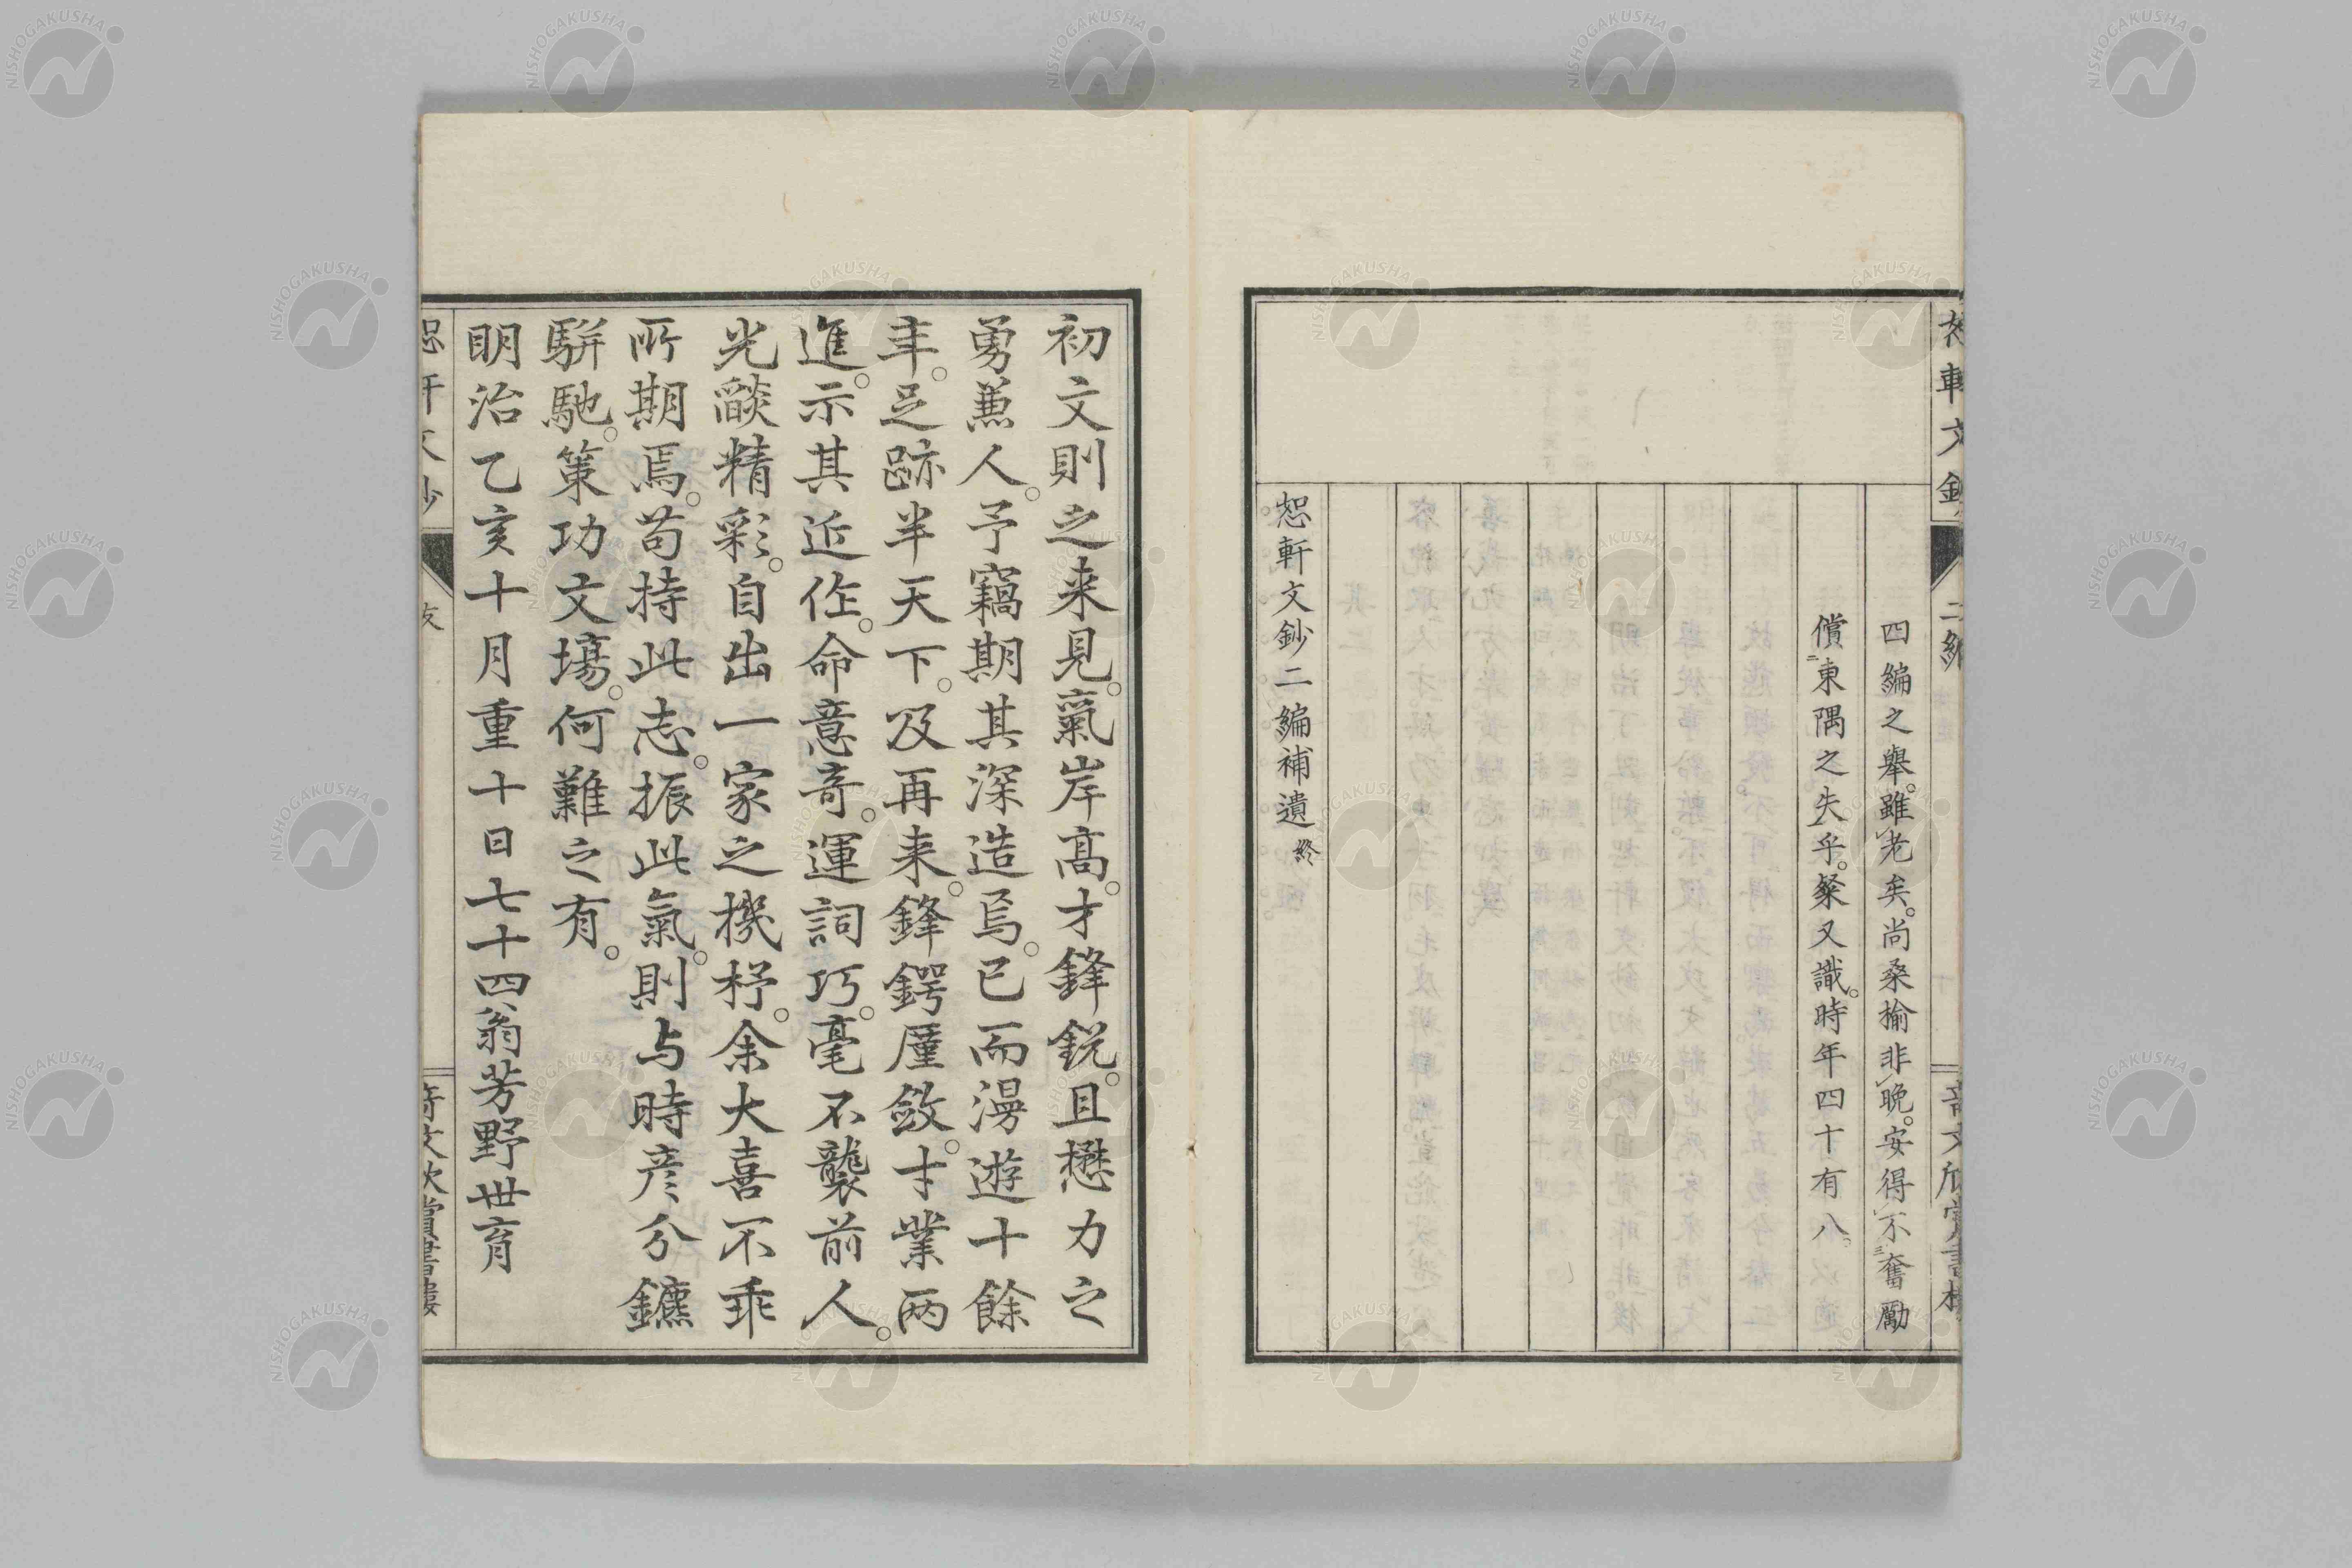 四編之舉。雖老矣。尚桑榆非晩。安得不奮勵
償東隅之失乎。粲又識。時年四十有八。
恕軒文鈔二編補遺終
初文則之来見。氣岸高。才鋒鋭。且懋力之
勇蒹人。予竊期其深造焉。已而漫遊十餘
年。足跡半天下。及再来。鋒鍔厪斂。才業兩
進。示其近作。命意奇。運詞巧。毫不襲前人。
光燄精彩。自出一家之機杼。余大喜不乖
所期焉。苟持此志。振此氣。則与時彦分鑣
駢馳。策功文場。何難之有。
明治乙亥十月重十日七十四翁芳野世育
NISHOGAKUSHA